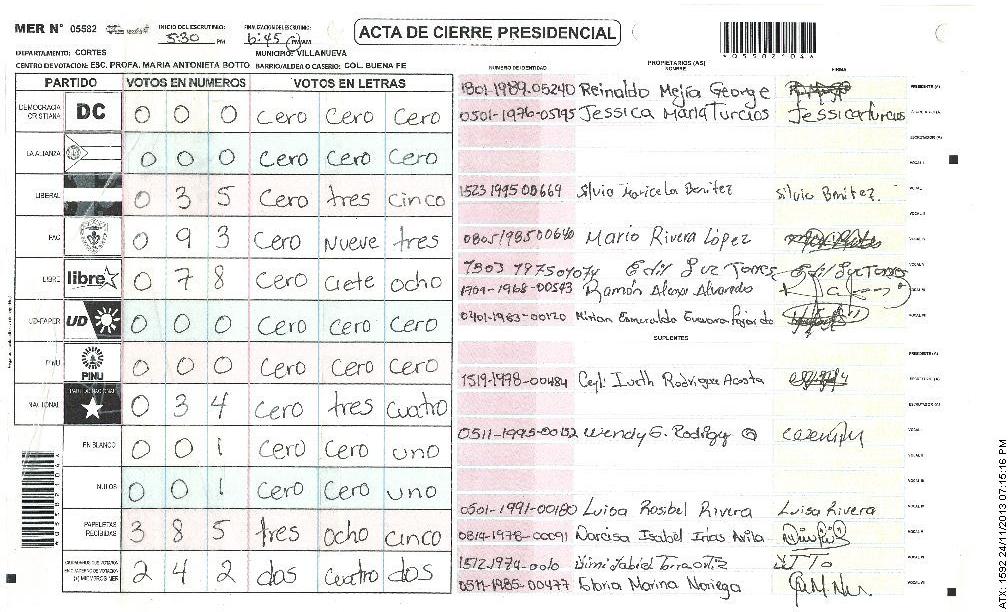 MER N° 05582 INICIO DEL ESCRUTINIO: 5:30 PM FINALIZACION DEL ESCRUTINIO: 6:45 PM/AM ACTA DE CIERRE PRESIDENCIAL
DEPARTAMENTO: CORTES MUNICIPIO: VILLANUEVA
CENTRO DE VOTACION: ESC. PROFA. MARIA ANTONIETA BOTTO BARRIO/ALDEA O CASERIO: COL. BUENA FE
PARTIDO VOTOS EN NUMEROS VOTOS EN LETRAS
DEMOCRACIA CRISTIANA DC 0 0 0 Cero Cero Cero
LA ALIANZA 0 0 0 Cero Cero Cero
LIBERAL 0 3 5 Cero tres cinco
PAC 0 9 3 Cero Nueve tres
LIBRE libre 0 7 8 Cero ciete ocho
UD-FAPER UD 0 0 0 Cero Cero Cero
PINU PINU 0 0 0 Cero Cero Cero
NACIONAL PARTIDO NACIONAL 0 3 4 Cero tres cuatro
EN BLANCO 0 0 1 Cero Cero uno
NULOS 0 0 1 Cero Cero uno
PAPELETAS RECIBIDAS 3 8 5 tres ocho cinco
2 4 2 dos cuatro dos
NUMERO DE IDENTIDAD PROPIETARIOS (AS) NOMBRE FIRMA
1801-1989-05240 Reinaldo Mejia George PRESIDENTE (A)
0501-1976-05195 Jessica Maria Turcios Jessica Turcios
ESCRUTADOR (A)
VOCAL I
1523 1995 00669 Silvia Maricela Benitez Silvia Benitez
0805 1985 00640 Mario Rivera López
Edil Luz Torres
1709-1968-00543 Ramón Alvarado
0401-1983-00120 Mirian Esmeralda Guevara
SUPLENTES
PRESIDENTE (A)
1519-1978-00484 Iveth Rodriguez Acosta
ESCRUTADOR (A)
0511-1995-00152 Wendy G.
0501-1991-00180 Luisa Rosibel Rivera Luisa Rivera
0814-1978-00091 Narcisa Isabel Irias Avila
0511-1985-00477 Gloria Marina Noriega
ATX: 1592 24/11/2013 07:15:16 PM